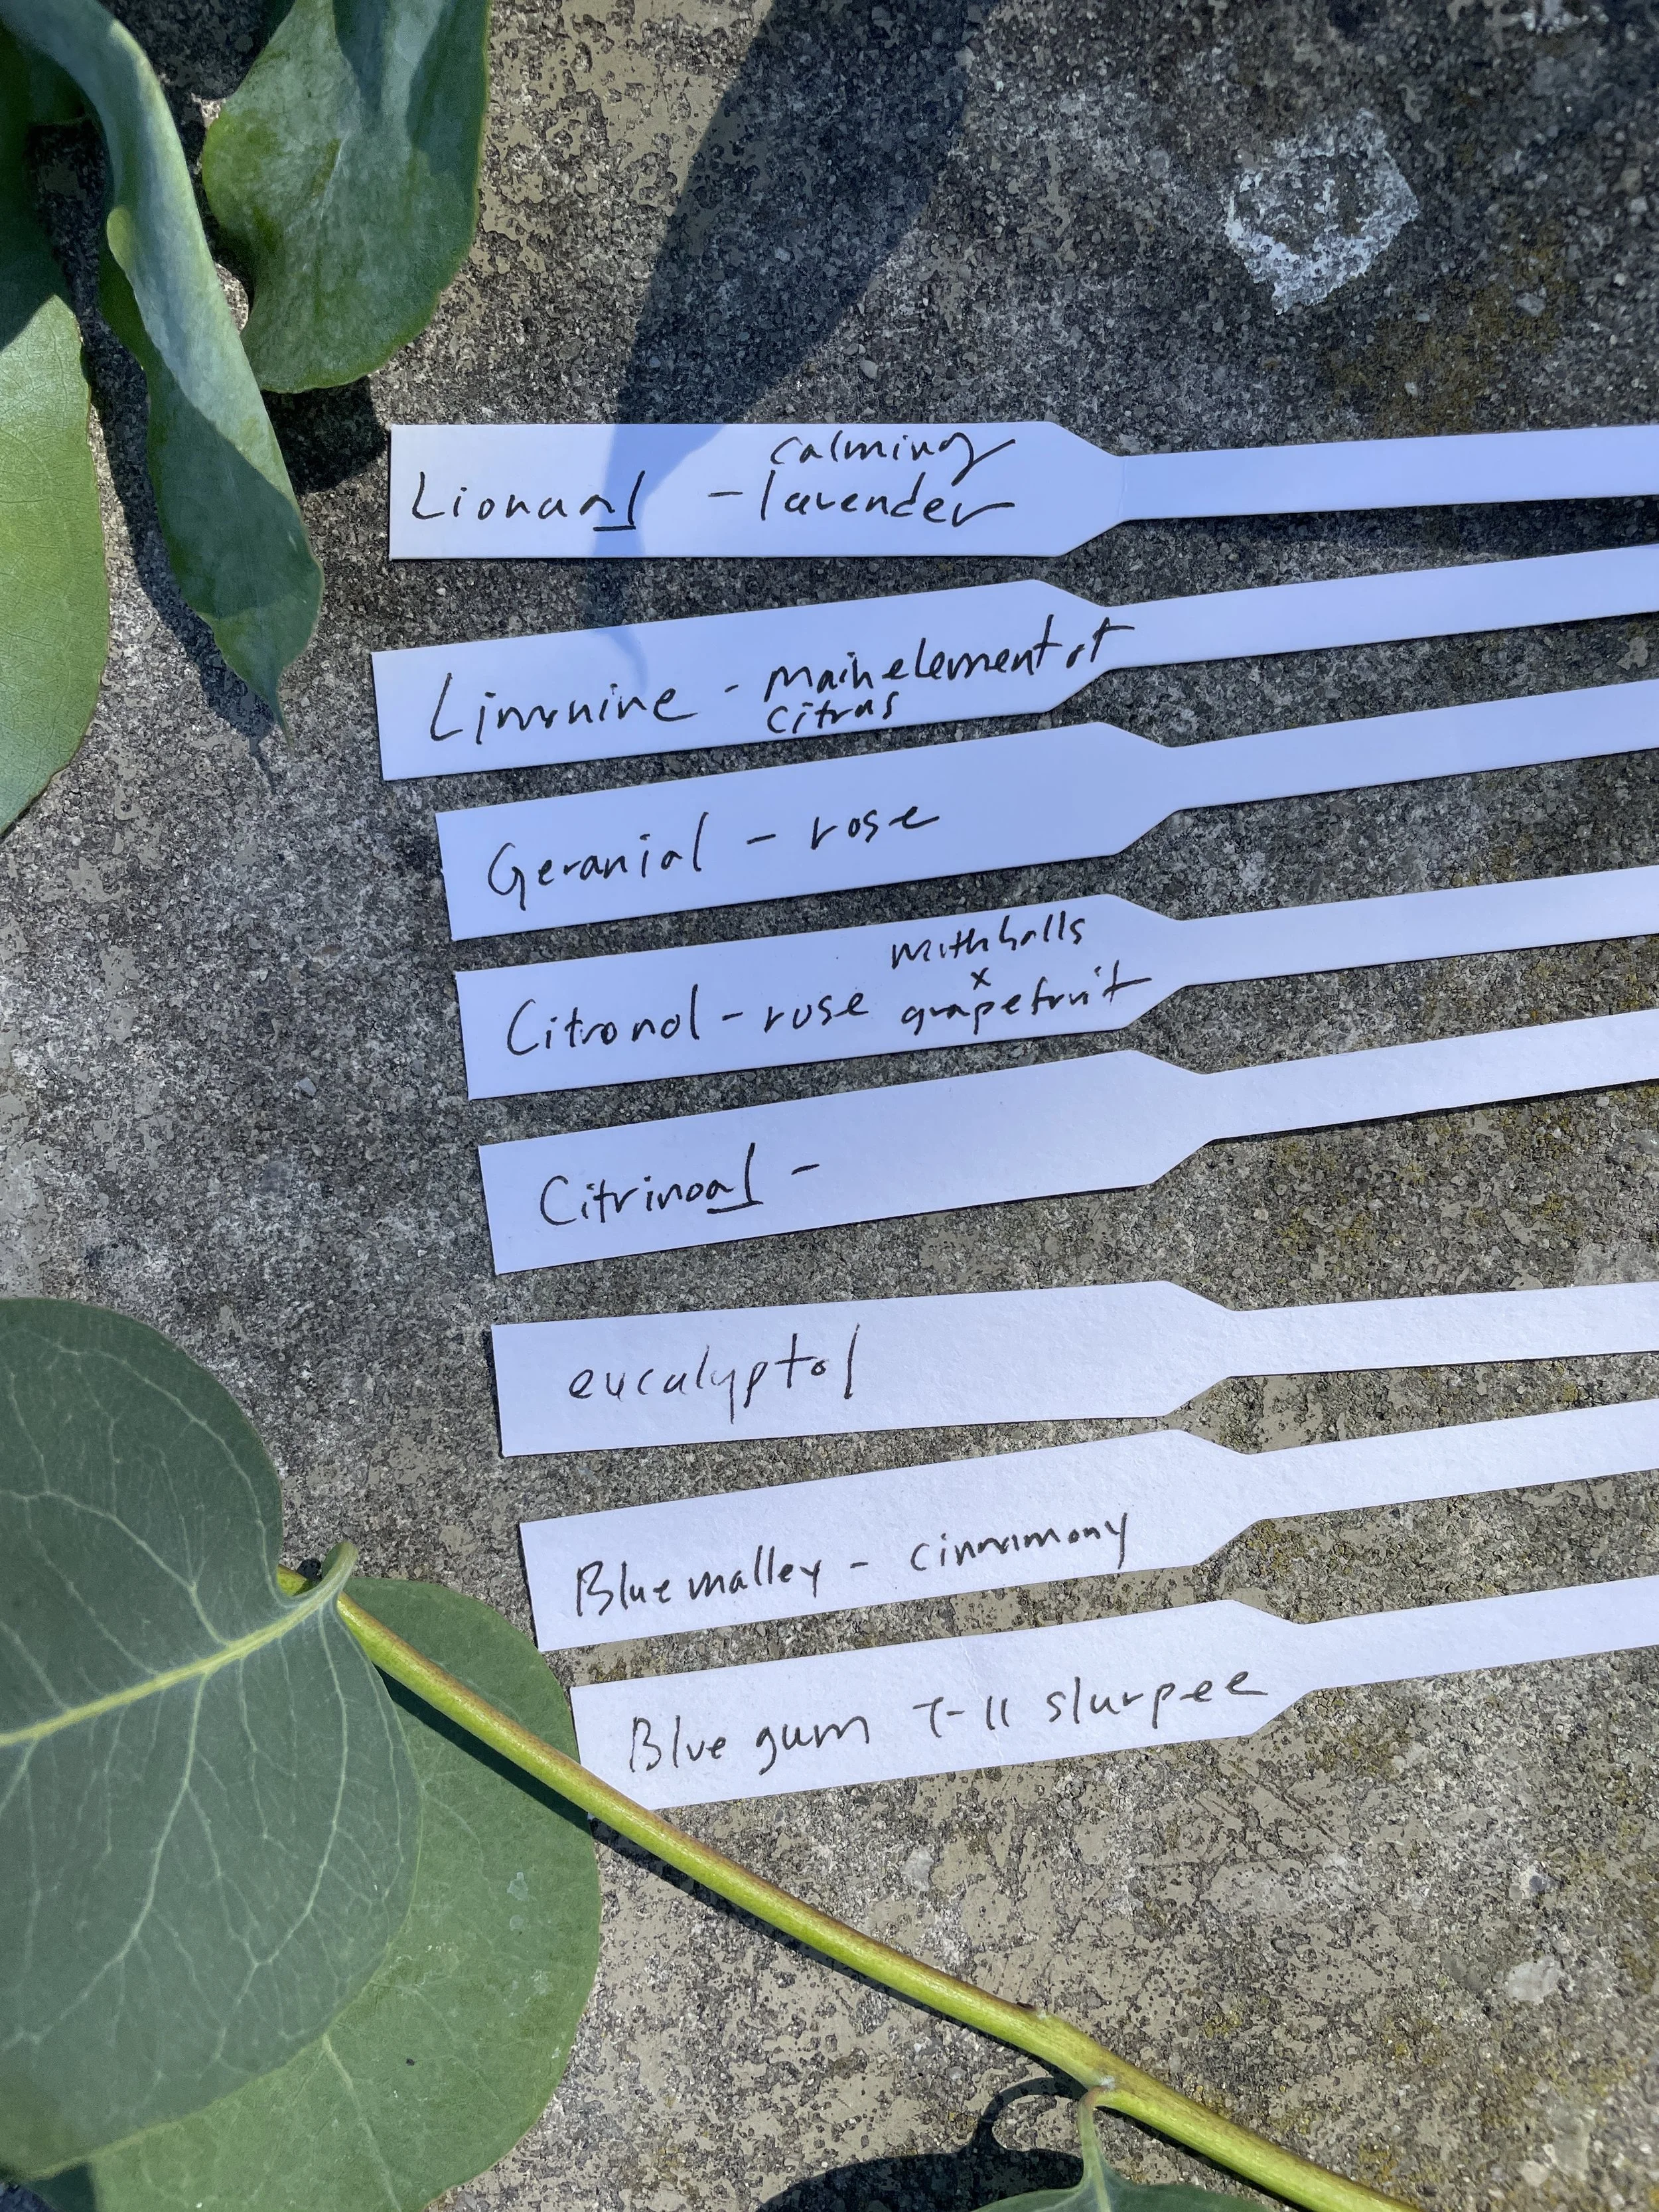 calming
Lionanl - lavender
Limonine - main element of
citrus
Geranial - rose
mothballs
x
Citronol - rose grapefruit
Citrinoal -
eucalyptol
Blue malley - cinnamony
Blue gum 7-11 slurpee